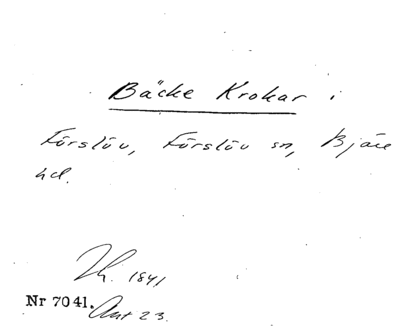 Bäcke Krokar i
Förslöv, Förslöv sn, Bjäre
hd.
Th. 1841
Nr 7041. Akt 23.